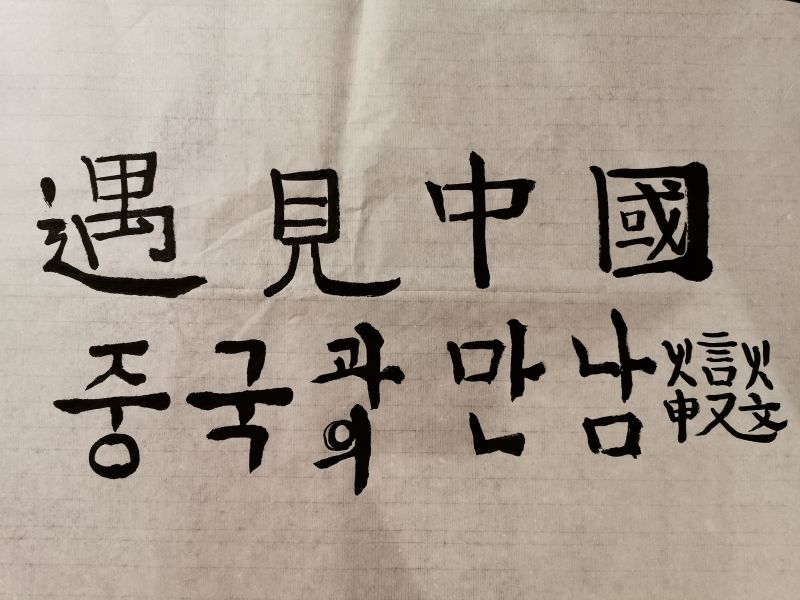 遇見中國
중국과의 만남